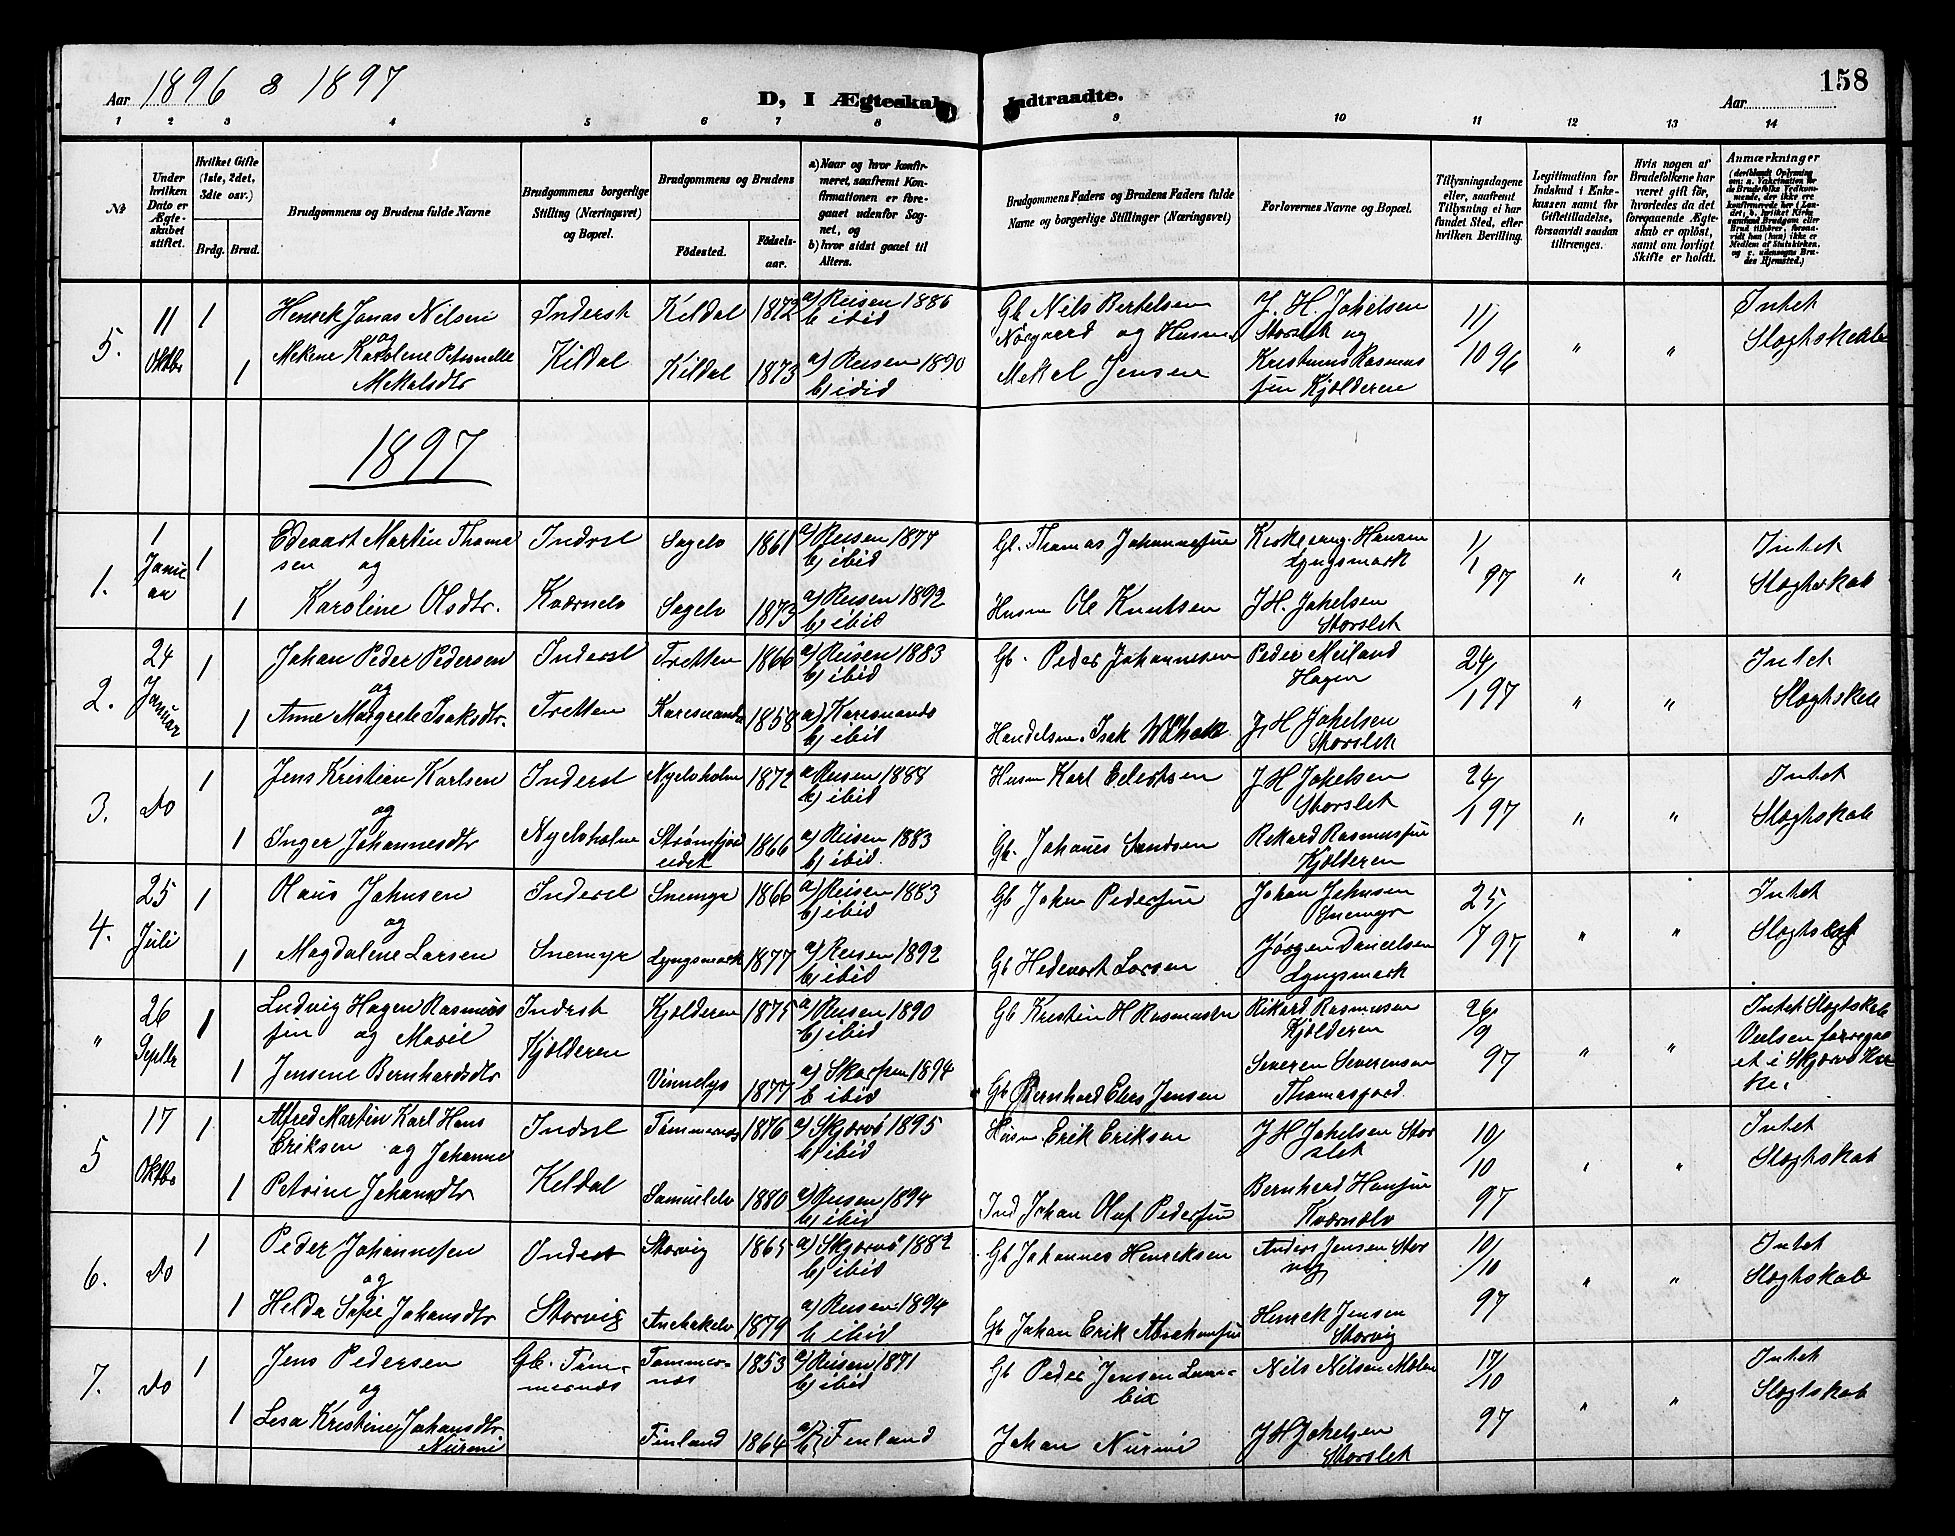 Aar 1896 & 1897
D, I Ægteskab Indtraadte.
Aar
158
1 2 3 4 5 6 7 8 9 10 11 12 13 14
№
Under hvilken Dato er Ægteskabet stiftet.
Hvilket Gifte (1ste, 2det, 3die osv.)
Brdg. Brud.
Brudgommens og Brudens fulde Navne
Brudgommens borgerlige Stilling (Næringsvei) og Bopæl.
Brudgommens og Brudens
Fødested. Fødselsaar.
a) Naar og hvor konfirmeret, saafremt Konfirmationen er foregaaet udenfor Sognet, og
b) hvor sidst gaaet til Alters.
Brudgommens Faders og Brudens Faders fulde Navne og borgerlige Stillinger (Næringsvei)
Forlovernes Navne og Bopæl.
Tillysningsdagene eller, saafremt Tillysning ei har fundet Sted, efter hvilken Bevilling.
Legitimation for Indskud i Enkekassen samt for Giftetilladelse, forsaavidt saadan tiltrænges.
Hvis nogen af Brudefolkene har været gift før, hvorledes da det foregaaende Ægteskab er opløst, samt om lovligt Skifte er holdt.
Anmærkninger
5. 11 Oktbr 1 1
Henrek Jonas Nilsen
og
Mekene Karolene Petrnelle
Mekalsdtr
Inderst
Kildal
Kildal 1872 a) Reisen 1886
b ibid
Kildal 1873 a) Reisen 1890
b) ibid
Gb Nils Bertelsen
Norgaard og Husm
Mekal Jensen
J. H. Jakelsen
Storslet og
Krestianus Rasmus
sen Kjölderen
11/10 96 " "
Intet
Slægtskab
1897
1. 1 Januar 1 1
Edevart Martin Thoma
sen og
Karoline Olsdtr.
Inderst
Kværnelv
Sagelv 1861 a) Reisen 1877
b) ibid
Sagelv 1873 a) Reisen 1892
b) ibid
Gb. Thomas Johannesen
Husm Ole Knutsen
Kirkesang. Hansen
Lyngsmark
J.H. Jakelsen
Storslet
1/1 97 " "
Intet
Slægtskab
2. 24 Januar 1 1
Johan Peder Pedersen
og
Anne Margrete Isaksdtr.
Inderst
Tretten
Tretten 1866 a) Reisen 1883
b) ibid
Karesuando 1858 a) Karesuando
b) ibid
Gb. Peder Johannesen
Handelsm. Isak
Peder Neiland
Hagen
J H Jakelsen
Storslet
24/1 97 " "
Intet
Slægtskab
3. Do 1 1
Jens Kristian Karlsen
og
Inger Johannesdtr
Inderst
Nyelvholm
Nyelvholm 1872 a) Reisen 1888
b) ibid
Strömfjordeidet 1866 a) Reisen 1883
b) ibid.
Husm Karl Edertsen
Gb. Johanes Sandsen
J H Jakelsen
Storslet
Rekard Rasmussen
Kjölderen
24/1 97 " "
Intet
Slægtskab
4. 25 Juli 1 1
Olaus Johnsen
og
Magdalene Larsen
Inderst
Snemyr
Snemyr 1866 a) Reisen 1883
b) ibid
Lyngsmark 1877 a) Reisen 1892
b) ibid
Gb Johan Pedersen
Gb Hedevart Larsen
Johan Johnsen
Snemyr
Jörgen Danielsen
Lyngsmark
25/7 97 " "
Intet
Slægtskab
" 26 Septbr 1 1
Ludvig Hagen Rasmus
sen og
Jensene Bernhardsdtr
Inderst
Kjölderen
Kjölderen 1875 a) Reisen 1890
b) ibid
Vinnelys 1877 a) Skarpen 1894
b ibid
Gb Kristin H Rasmussen
Gb Bernhard Elias Jensen
Rikard Rasmusen
Kjölderen
Severen Severensen
Thomasjord.
26/9 97 " "
Intet Slægtskab
Vielsen foregaa
et i Skjervö Kir
ke.
5 17 Oktbr 1 1
Alfred Martin Karl Hans
Eriksen og Johanne
Petrine Johansdtr
Inderst
Keldal
Tömmernæs 1876 a) Skjervö 1895
b) ibid
Samuelelv 1880 a) Reisen 1894
b) ibid
Husm Erik Eriksen
Ind Johan Oluf Pedersen
J H Jakelsen Stor
slet
Bernhard Hansen
Kværnelv
10/10 97 " "
Intet
Slægtskab
6. Do 1 1
Peder Johannesen
og
Helda Sofie Johansdtr
Inderst
Storvig
Storvig 1865 a) Skjervö 1882
b) ibid
1879 a) Reisen 1894
b ibid
Gb Johannes Henriksen
Gb Johan Erik Abrahamsen
Anders Jensen Stor
vig
Henrek Jensen
Storvig
10/10 97 " "
Intet
Slægtskab
7. Do 1 1
Jens Pedersen
og
Lesa Kristine Johansdtr
Nurmi
Gb. Töm-
mernæs
Tømmer-
næs 1853 a) Reisen 1871
b) ibid
Finland 1864 a) b) Finland
Gb Peder Jensen
Johan Nurmi
Nils Nilsen
J H Jakelsen
Storslet
17/10 97 " "
Intet
Slægtskab